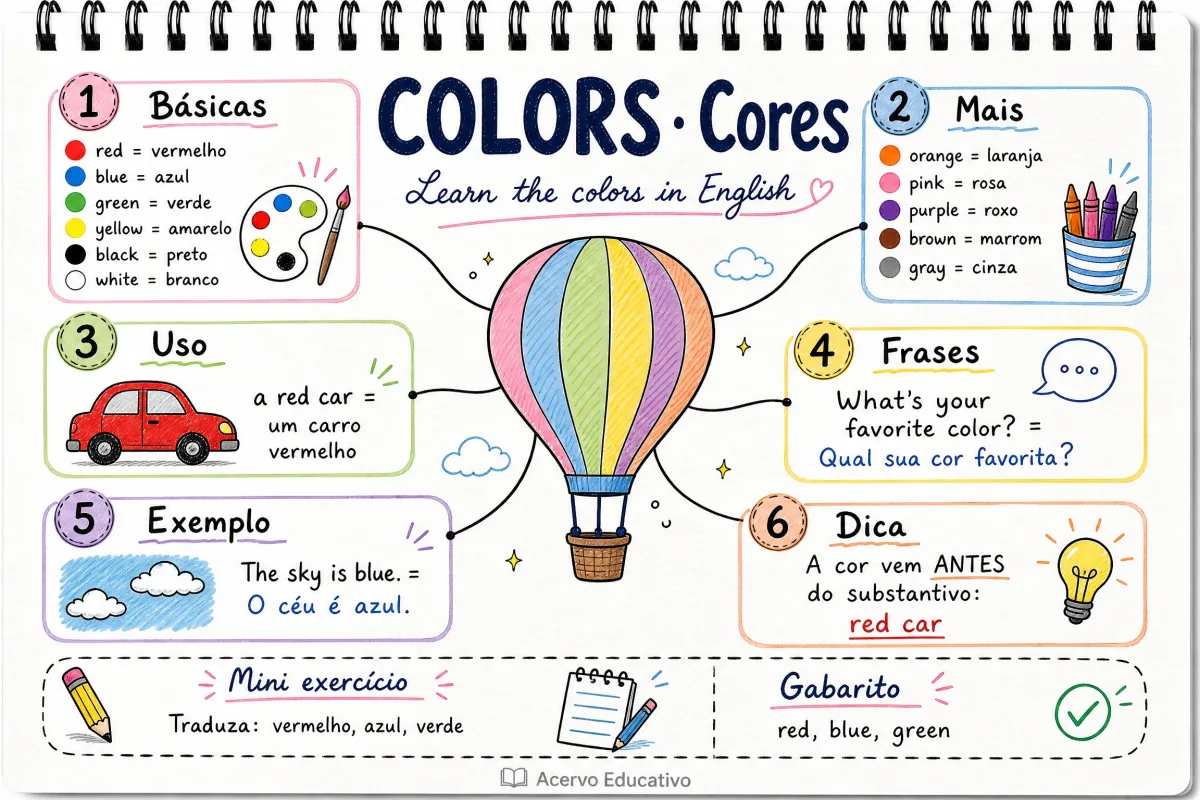 COLORS · Cores
Learn the colors in English
1 Básicas
red = vermelho
blue = azul
green = verde
yellow = amarelo
black = preto
white = branco
2 Mais
orange = laranja
pink = rosa
purple = roxo
brown = marrom
gray = cinza
3 Uso
a red car =
um carro
vermelho
4 Frases
What's your
favorite color? =
Qual sua cor favorita?
5 Exemplo
The sky is blue. =
O céu é azul.
6 Dica
A cor vem ANTES
do substantivo:
red car
Mini exercício
Traduza: vermelho, azul, verde
Gabarito
red, blue, green
Acervo Educativo